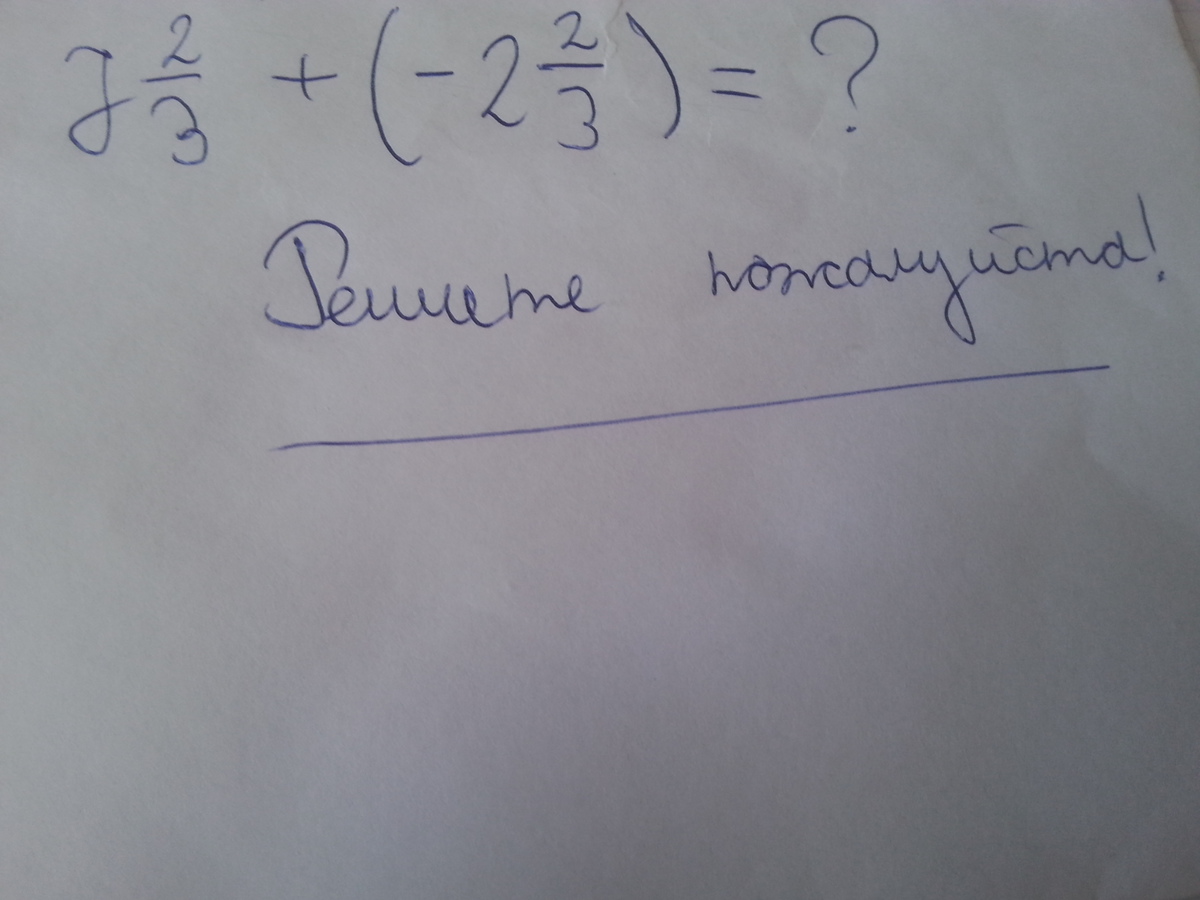 7 2/3 + (-2 2/3) = ?
Решите пожалуйста!